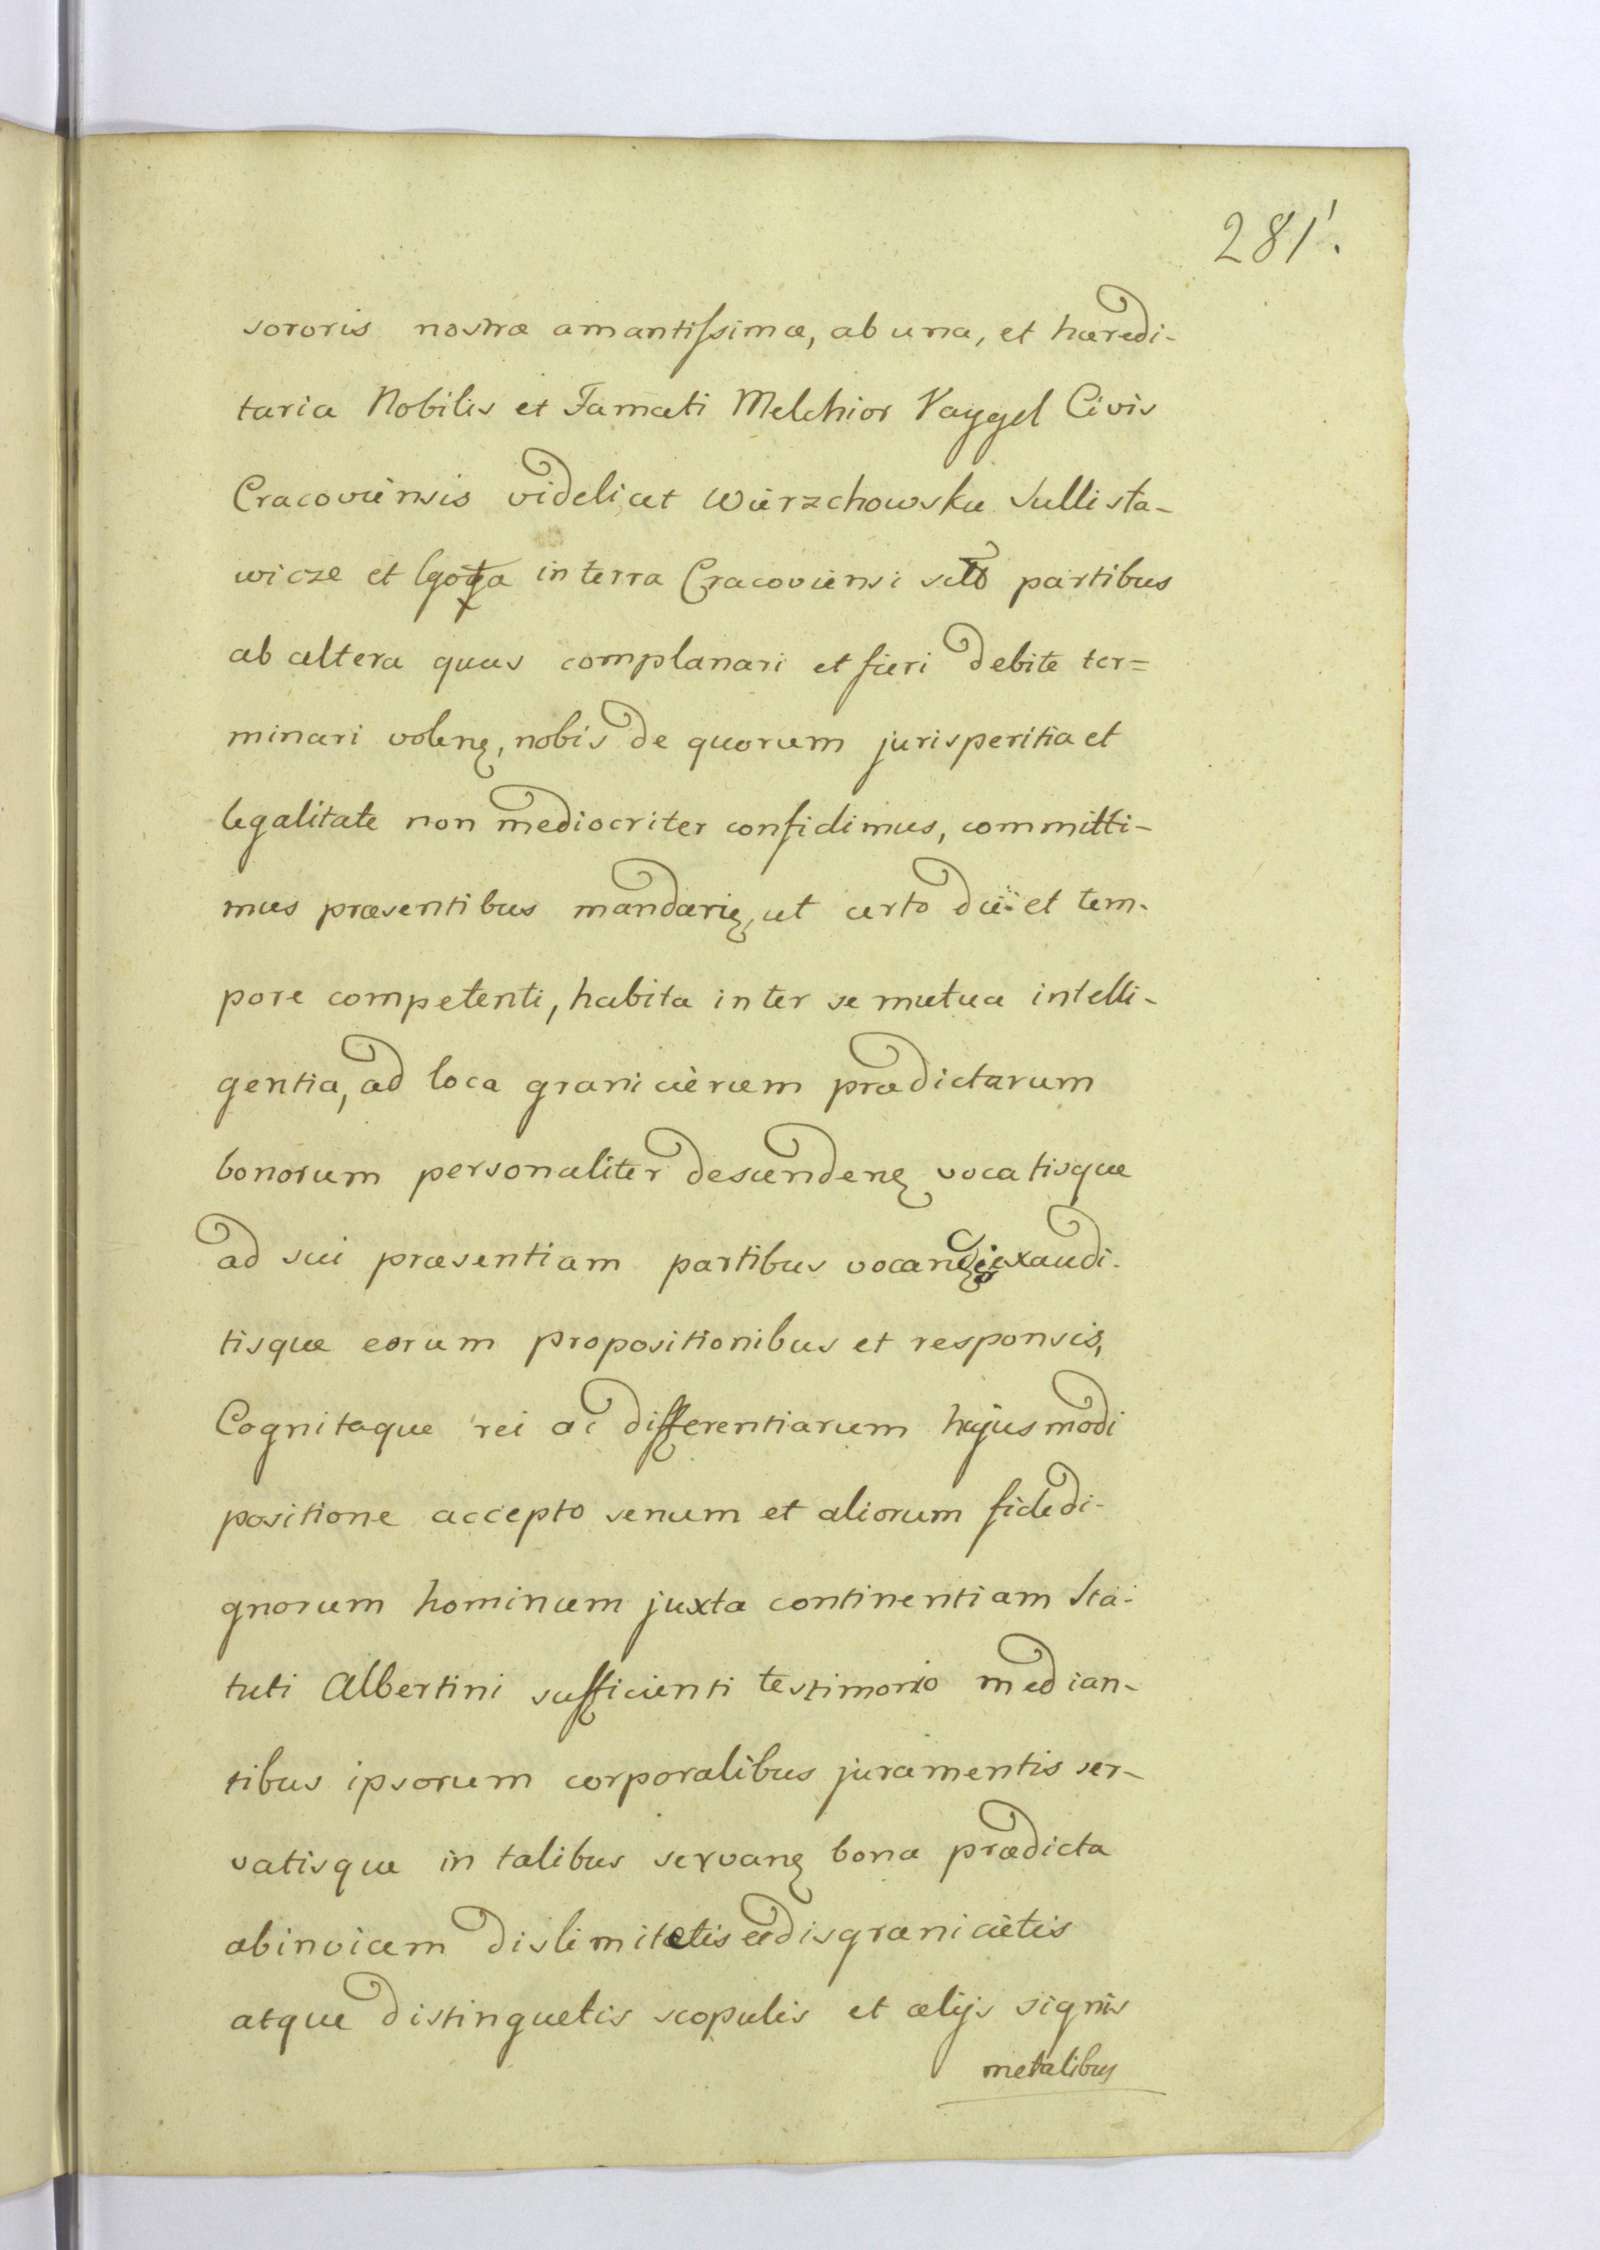 281.
sororis nostræ amantissimæ, ab una, et hæredi-
taria Nobilis et Famati Melchior Vaygel Civis
Cracoviensis videlicet Wierzchowsku Sullista-
wicze et Lgota in terra Cracoviensi partibus
ab altera quas complanari et fieri debite ter=
minari volenꝫ, nobis de quorum jurisperitia et
legalitate non mediocriter confidimus, committi-
mus præsentibus mandanꝫ, ut certo die et tem-
pore competenti, habita inter se mutua intelli-
gentia, ad loca granicierum prædictarum
bonorum personaliter descendenꝫ vocatisque
ad sui præsentiam partibus vocanꝫ exaudi-
tisque eorum propositionibus et responsis,
Cognitaque rei ac differentiarum hujusmodi
positione accepto senum et aliorum fidedi-
gnorum hominum juxta continentiam Sta-
tuti Albertini sufficienti testimonio median-
tibus ipsorum corporalibus juramentis ser-
vatisque in talibus servanꝫ bona prædicta
abinvicem dislimitatis ac disgranicietis
atque distinguetis scopulis et alijs signis
metalibus